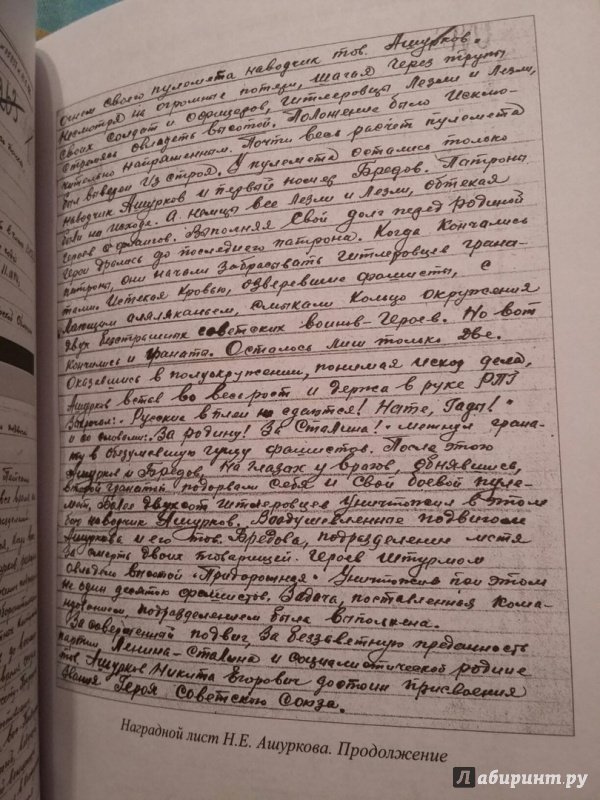 огнем своего пулемета наводчик тов. Ашурков.
Несмотря на огромные потери, шагая через трупы
своих солдат и офицеров, гитлеровцы лезли и лезли,
стремясь овладеть высотой. Положение было исклю-
чительно напряженным. Почти весь расчет пулемета
был выведен из строя. У пулемета остались только
наводчик Ашурков и первый номер Бредов. Патроны
были на исходе. А немцы все лезли и лезли, обтекая
героев с флангов. Выполняя свой долг перед Родиной
герои дрались до последнего патрона. Когда кончились
патроны, они начали забрасывать гитлеровцев грана-
тами. Истекая кровью, озверевшие фашисты, с
лающим аляляканьем, смыкали кольцо окружения
двух бесстрашных советских воинов-героев. Но вот
кончились и граната. Осталось лиш только две.
Оказавшись в полуокружении, понимая исход дела,
Ашурков встав во весь рост и держа в руке РПГ
закричал: "Русские в плен не сдаются! Нате, гады!"
и со словами: "За Родину! За Сталина!" метнул грана-
ту в обезумевшую гущу фашистов. После этого
Ашурков и Бредов, на глазах у врагов, обнявшись,
второй гранатой подорвали себя и свой боевой пуле-
мет. Более двухсот гитлеровцев уничтожил в этом
бою наводчик Ашурков. Воодушевленные подвигом
Ашуркова и его тов. Бредова, подразделение мстя
за смерть двоих товарищей. Героев штурмом
овладело высотой "Придорожная" уничтожив при этом
не один десяток фашистов. Задача, поставленная кома-
ндованием подразделением была выполнена.
За совершенный подвиг, за беззаветную преданность
партии Ленина-Сталина и социалистической родине
тов. Ашурков Никита Егорович достоин присвоения
звания Героя Советского Союза.
Наградной лист Н.Е. Ашуркова. Продолжение
Лабиринт.ру